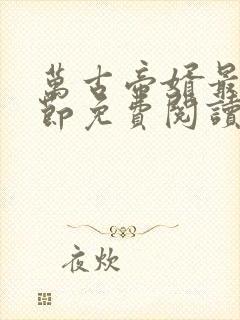 萬古帝婿最
節免費閱讀
夜炊